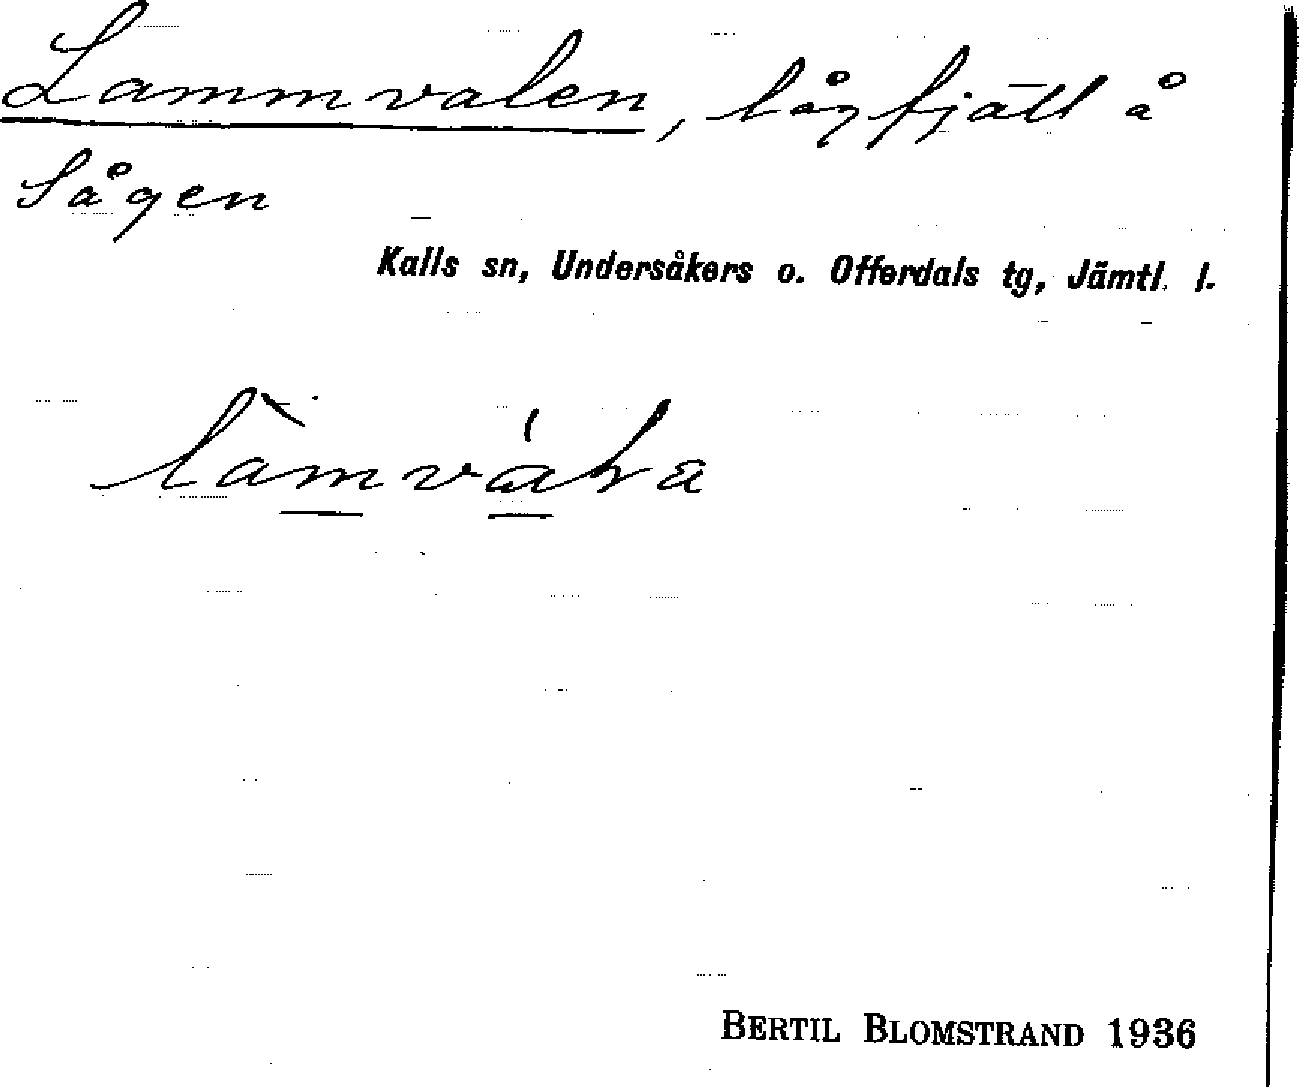 Lammvalen, lågfjäll å
Sågen
Kalls sn, Undersåkers o. Offerdals tg, Jämtl. l.
BERTIL BLOMSTRAND 1936